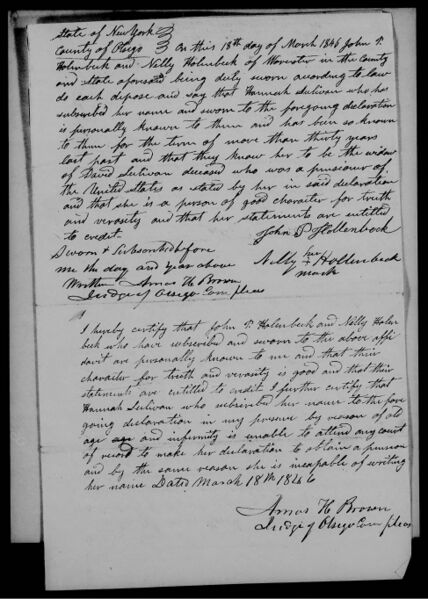 State of New York
County of Otsego On this 18th day of March 1846 John P.
Holenbeck and Nelly Holenbeck of Worcester in the County
and State aforesaid being duly sworn according to law
do each depose and say that Hannah Sulivan who has
subscribed her name and sworn to the foregoing declaration
is personally known to them and has been so known
to them for the term of more than thirty years
last past and that they know her to be the widow
of David Sulivan deceased who was a pensioner of
the United States as stated by her in said declaration
and that she is a person of good character for truth
and verosity and that her statements are entitled
to credit.
John P Hollenbeck
Sworn & Subscribed before
me the day and year above
Nelly her + Holenbeck
mark
Written Amos H Brown
Judge of Otsego Com pleas
I hereby certify that John P. Holenbeck and Nelly Holen
beck who have subscribed and sworn to the above affi
davit are personally known to me and that their
character for truth and verasity is good and that their
statements are entitled to credit I further certify that
Hannah Sulivan who subscribed her name to the fore
going declaration in my presence by reason of old
age and infirmity is unable to attend any court
of record to make her declaration to obtain a pension
and by the same reason she is incapable of writing
her name Dated March 18th 1846
Amos H Brown
Judge of Otsego Com pleas